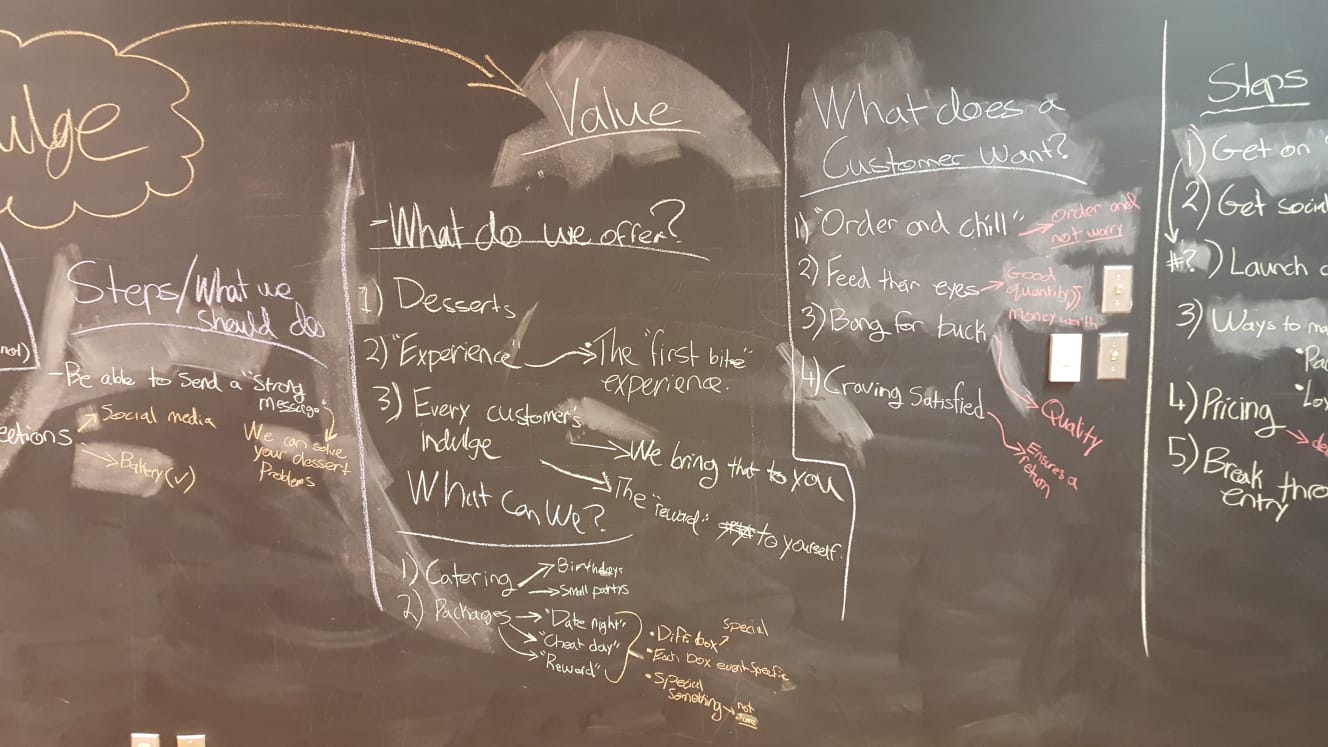 ulge
Value
Steps/What we
should do
-Be able to send a "strong
message"
Social media
ections
Bakery(✓)
We can solve
your dessert
Problems
not)
-What do we offer?
1) Desserts
2) "Experience → The "first bite"
experience.
3) Every customer's
indulge
→ We bring that to you
→ The "reward" to yourself.
What Can We?
1) Catering → Birthdays
→ Small partys
2) Packages → "Date night"
→ "Cheat day"
→ "Reward"
• Diff. box
special
• Each box event specific
• Special
something → not
What does a
Customer Want?
1) "Order and chill" → order and
not worry
2) Feed their eyes → Good
quantity
money worth
3) Bang for buck
Quality
4) Craving Satisfied
Ensures a
return
Steps
1) Get on
2) Get social
#?) Launch
3) Ways to ma
4) Pricing → de
5) Break thro
entry